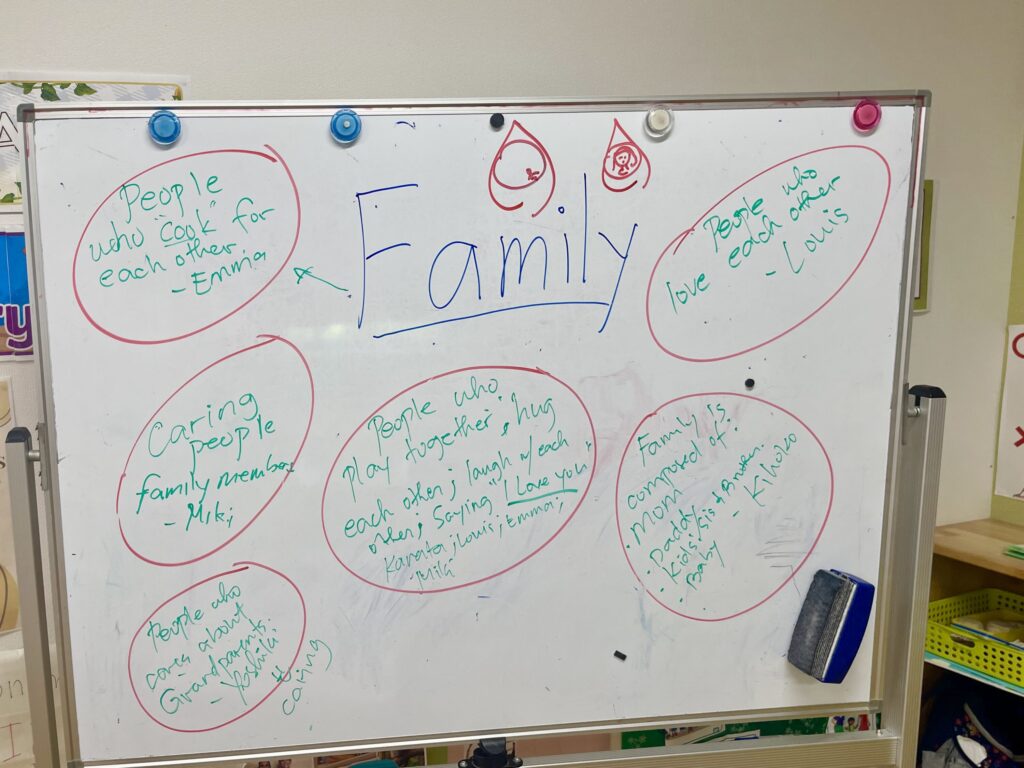 Family
People
who "cook" for
each other
- Emma
People who
love each other
- Louis
Caring
people
family member
- Miki
People who
play together; hug
each other; laugh w/each
other; Saying "I Love you"
Kanata; Louis; Emma;
Miki
Family is
composed of:
• mom
• Daddy
• Kids: sis +
• Baby
- Kihono
People who
cares about
Grandparents.
- Yoshiki
caring